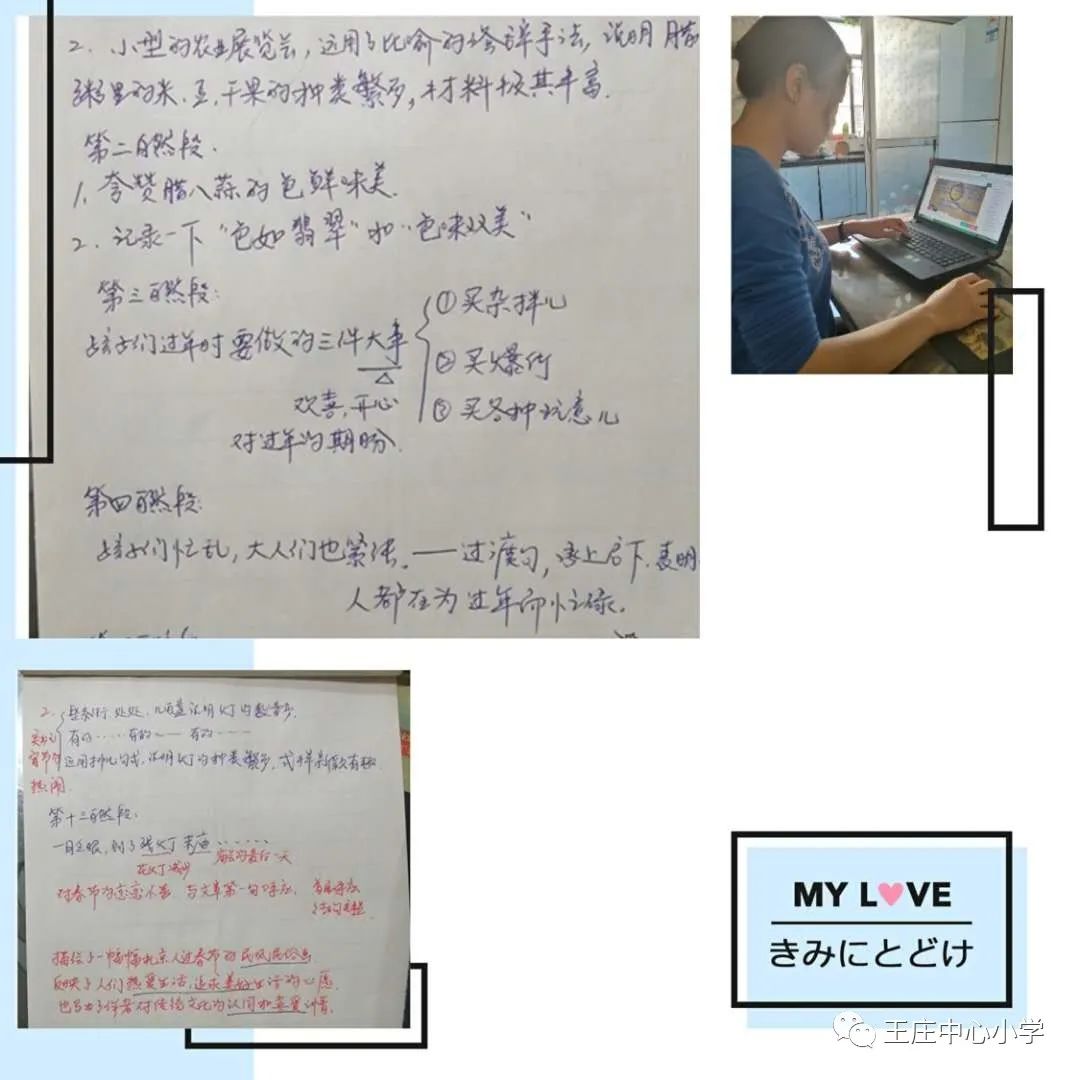 2. 小型的农业展览会,运用了比喻的修辞手法,说明腊
粥里的米、豆、干果的种类繁多,材料极其丰富.
第二自然段.
1. 夸赞腊八蒜的色鲜味美.
2. 记录一下“色如翡翠”和“色味双美”
第三自然段:
孩子们过年时要做的三件大事
① 买杂拌儿
② 买爆竹
③ 买各种玩意儿
欢喜,开心
对过年的期盼.
第四自然段:
孩子们忙乱,大人们也紧张. —— 过渡句,承上启下.表明
人都在为过年而忙碌.
2. 整条街、处处、几百盏说明灯的数量多.
有的…… 有的…… 有的……
运用排比句式,说明灯的种类繁多,式样新颖有趣.
宵节的
热闹.
第十三自然段:
一眨眼,到了残灯末庙……
对春节的恋恋不舍 与文章第一句呼应, 首尾呼应
结构完整
描绘了一幅幅北京人过春节的民风民俗画
反映了人们热爱生活,追求美好生活的心愿.
也写出了作者对传统文化的认同和喜爱之情.
MY LOVE
きみにとどけ
王庄中心小学